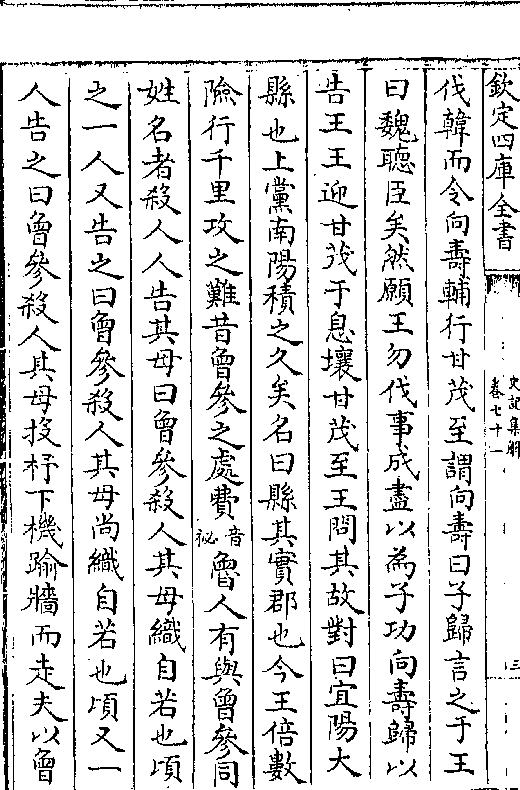 欽定四庫全書
史記集解
卷七十一
三
伐韓而令向壽輔行甘茂至謂向壽曰子歸言之于王
曰魏聽臣矣然願王勿伐事成盡以為子功向壽歸以
告王王迎甘茂于息壤甘茂至王問其故對曰宜陽大
縣也上黨南陽積之久矣名曰縣其實郡也今王倍數
險行千里攻之難昔曾參之處費音祕魯人有與曾參同
姓名者殺人人告其母曰曾參殺人其母織自若也頃
之一人又告之曰曾參殺人其母尚織自若也頃又一
人告之曰曾參殺人其母投杼下機踰牆而走夫以曾